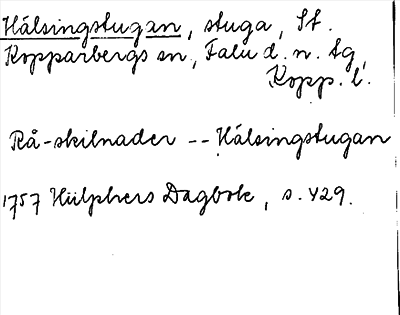 Hälsingstugan, stuga, St.
Kopparbergs sn, Falu d. n. tg,
Kopp. l.
Rå-skilnader -- Hälsingstugan
1757 Hülphers Dagbok, s. 429.